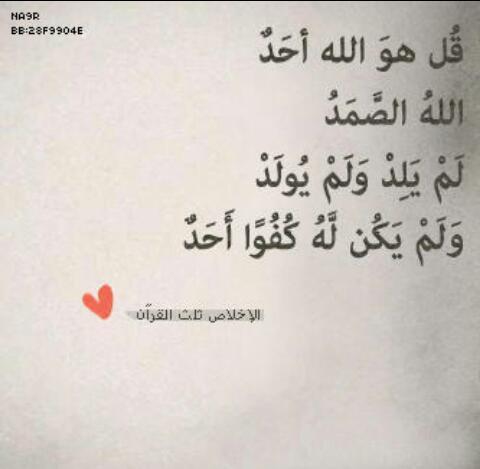 NA9R
BB:28F9904E
قُل هوَ الله أحَدٌ
اللهُ الصَّمَدُ
لَمْ يَلِدْ وَلَمْ يُولَدْ
وَلَمْ يَكُن لَّهُ كُفُوًا أَحَدٌ
الإخلاص ثلث القرآن